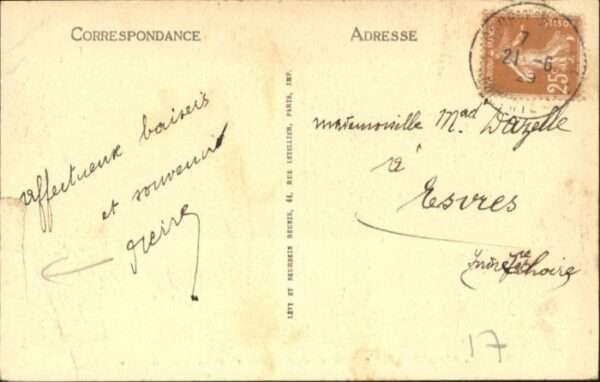 CORRESPONDANCE
ADRESSE
7
21 -6
25c
Affectueux baisers
et souvenir
Pierre
LÉVY ET NEURDEIN RÉUNIS, 44, RUE LETELLIER, PARIS, IMP.
mademoiselle Mad Dazelle
à
Esvres
Indre
Loire
17